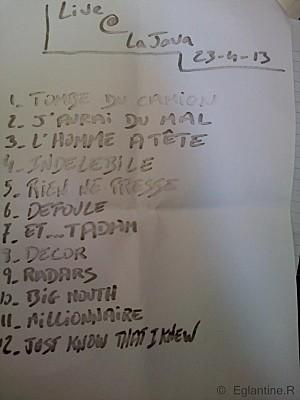 Live
@
La Java
23-4-13
1_ TOMBE DU CAMION
2_ J'AURAI DU MAL
3_ L'HOMME A TÊTE
4_ INDELEBILE
5_ RIEN NE PRESSE
6_ DEFOULE
7_ ET...TADAM
8_ DECOR
9_ RADARS
10_ BIG MOUTH
11_ MILLIONNAIRE
12_ JUST KNOW THAT I KNEW
© Eglantine.R